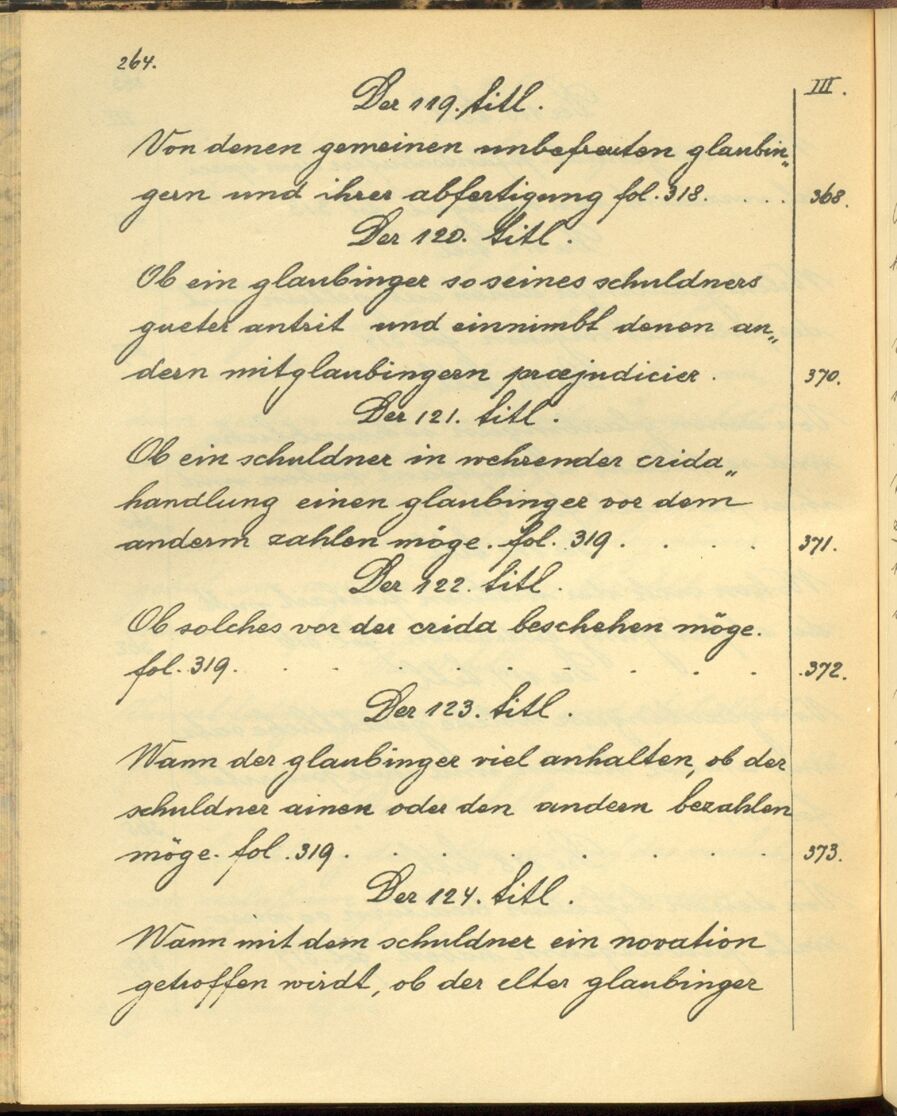 264.
III.
Der 119. titl.
Von denen gemeinen unbefreuten glaubin„
gern und ihrer abfertigung fol. 318. . . . 368.
Der 120. titl.
Ob ein glaubinger so seines schuldners
gueter antrit und einnimbt denen an„
dern mitglaubingern præjudicier. 370.
Der 121. titl.
Ob ein schuldner in wehrender crida„
handlung einen glaubinger vor dem
anderm zahlen möge. fol. 319. . . . . 371.
Der 122. titl.
Ob solches vor der crida beschehen möge.
fol. 319. . . . . . . . . 372.
Der 123. titl
Wann der glaubinger viel anhalten, ob der
schuldner ainen oder den andern bezahlen
möge. fol. 319. . . . . . . . 373.
Der 124. titl.
Wann mit dem schuldner ein novation
getroffen wirdt, ob der elter glaubinger